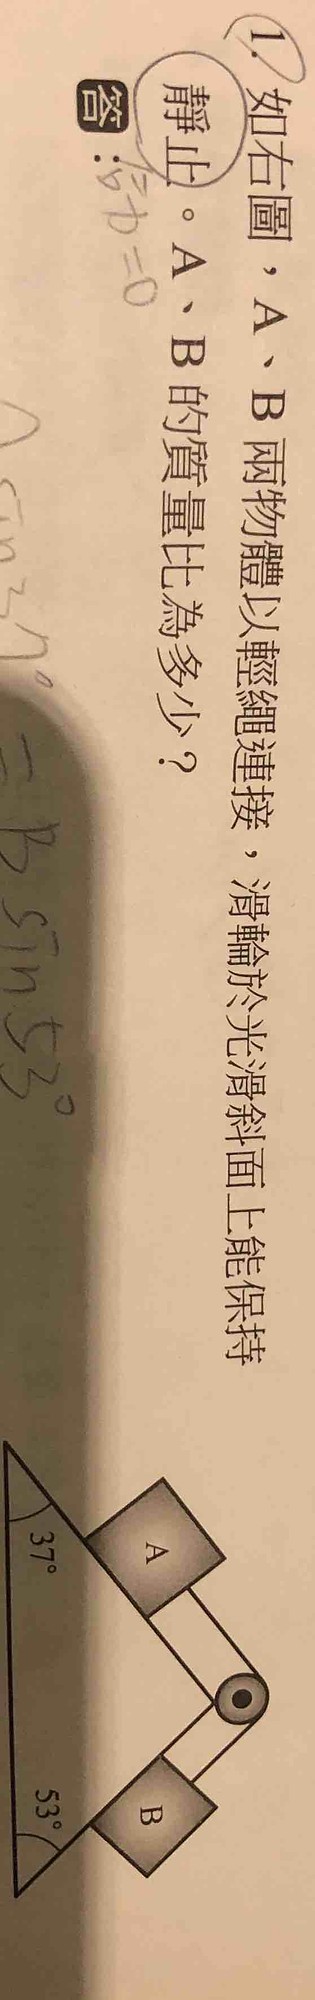 1. 如右圖，A、B 兩物體以輕繩連接，滑輪於光滑斜面上能保持
靜止。A、B 的質量比為多少？
答：合力=0
sin37° = B sin53°
A
B
37°
53°